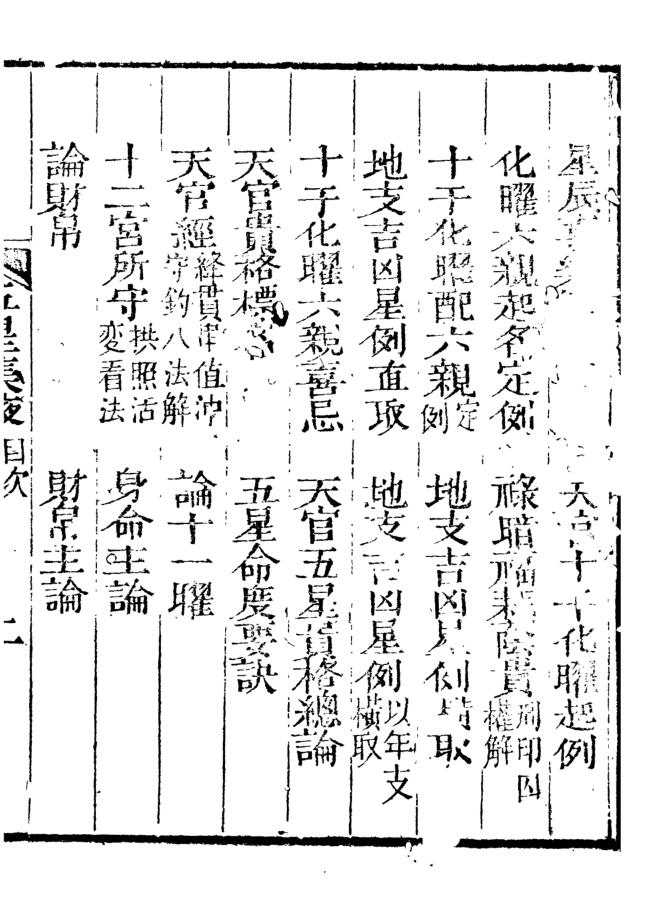 星辰
天官十干化曜起例
化曜六親起名定例
祿暗福耗蔭貴刑印囚權解
十干化曜配六親定例
地支吉凶星例取
地支吉凶星例直取
地支吉凶星例以年支橫取
十干化曜六親喜忌
天官五星貴格總論
天官貴格標
五星命度要訣
天官經絳貫串值沖守釣八法解
論十一曜
十二宮所守拱照活變看法
身命主論
論財帛
財帛主論
目次
二